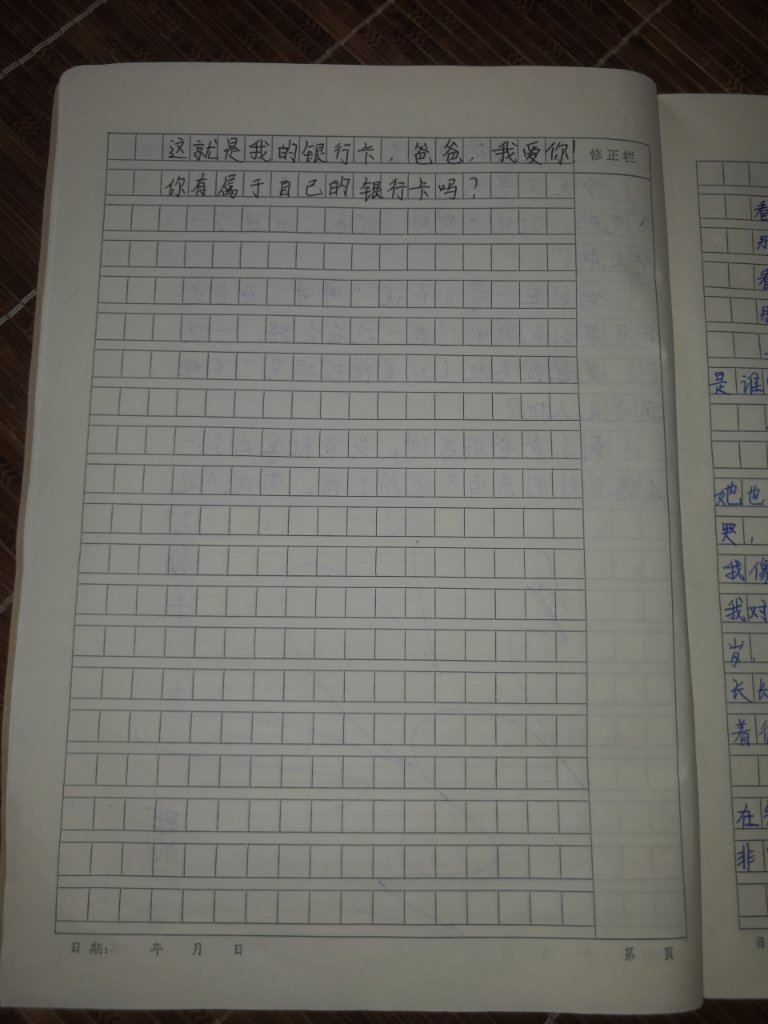 这就是我的银行卡，爸爸，我爱你！
修正栏
你有属于自己的银行卡吗？
日期： 年 月 日
第 页
看
看
是谁
她也
哭，
我像
我对
岁，
长长
着
在
非
日